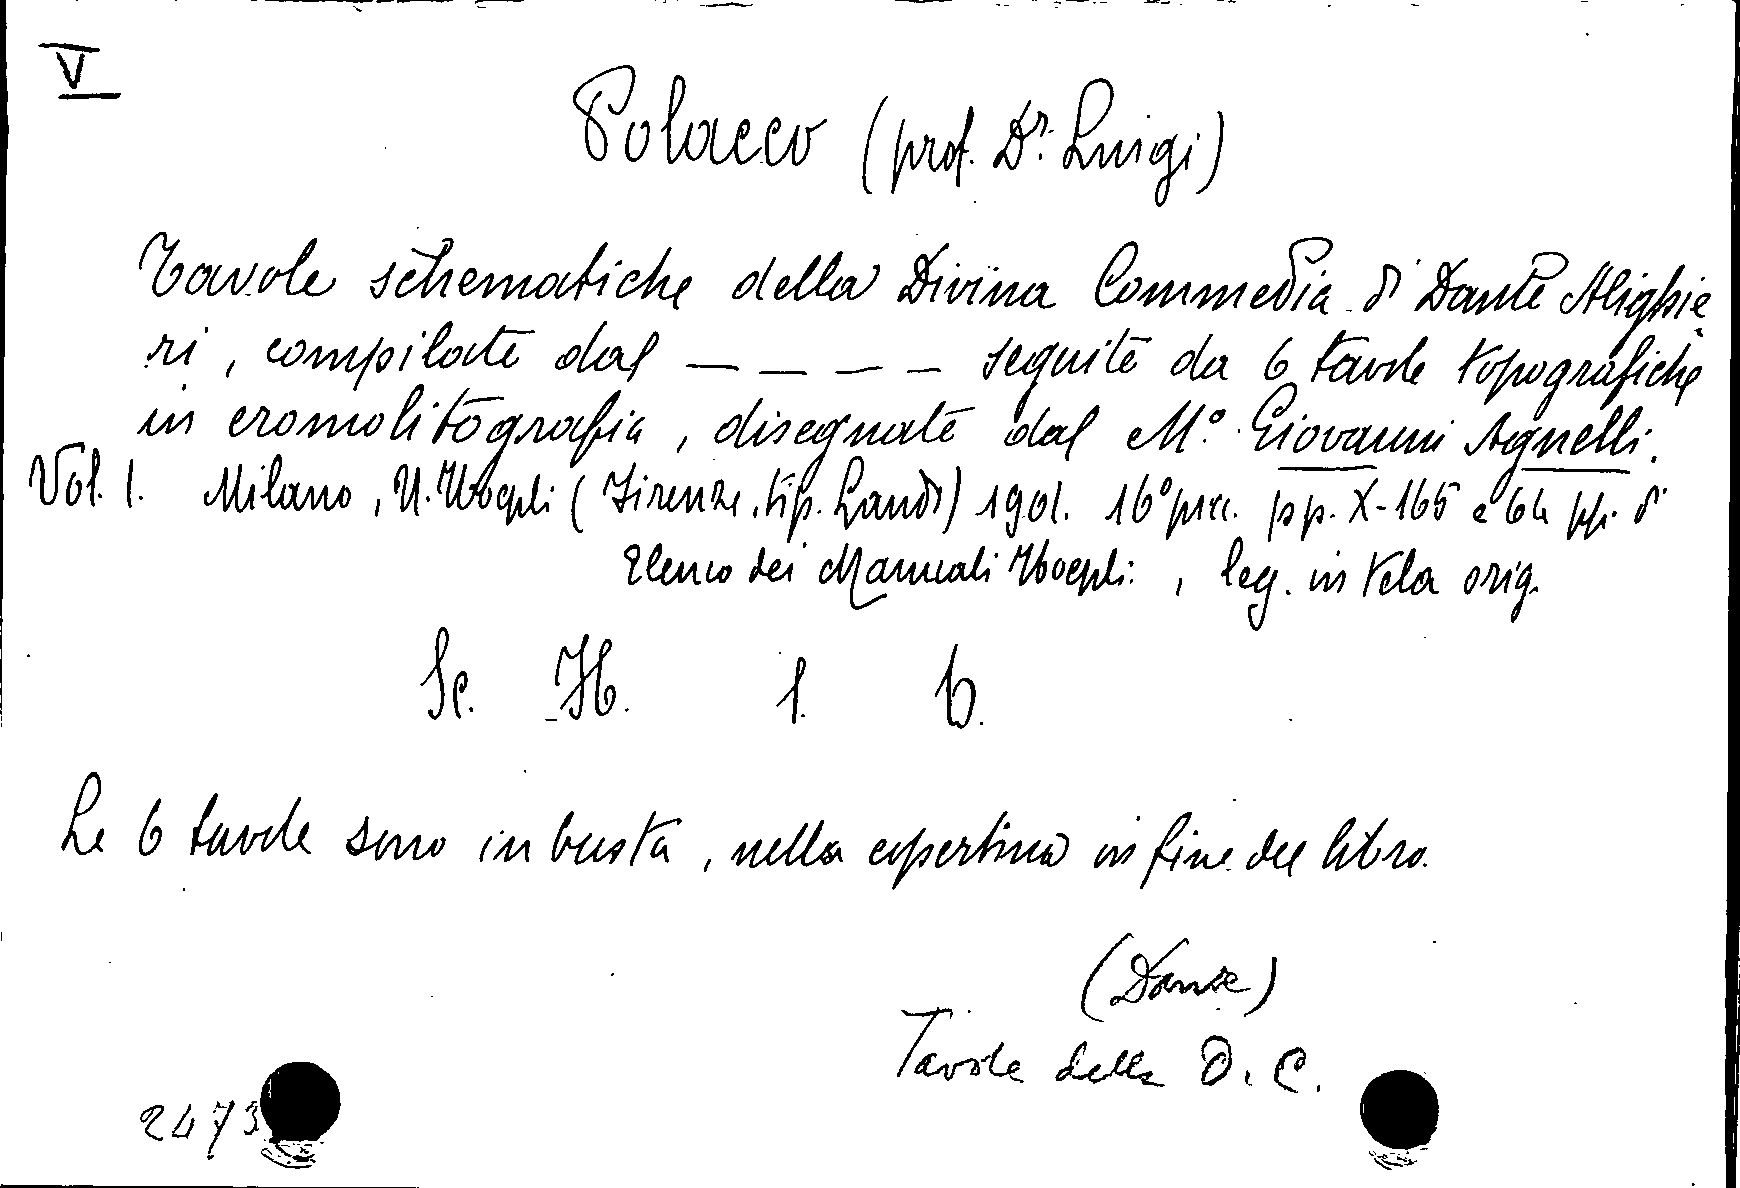 V
Polacco (prof. Dr. Luigi)
Tavole schematiche della Divina Commedia di Dante Alighie
ri, compilate dal _ _ _ _ seguite da 6 tavole topografiche
in cromolitografia, disegnate dal M.° Giovanni Agnelli.
Vol. 1. Milano, U. Hoepli (Firenze, tip. Landi) 1901. 16° picc. pp. X-165 e 64 pp. di
Elenco dei Manuali Hoepli. , leg. in tela orig.
Sc. H. 1. 6.
Le 6 tavole sono in busta, nella copertina in fine del libro.
(Dante)
Tavole della D. C.
2473